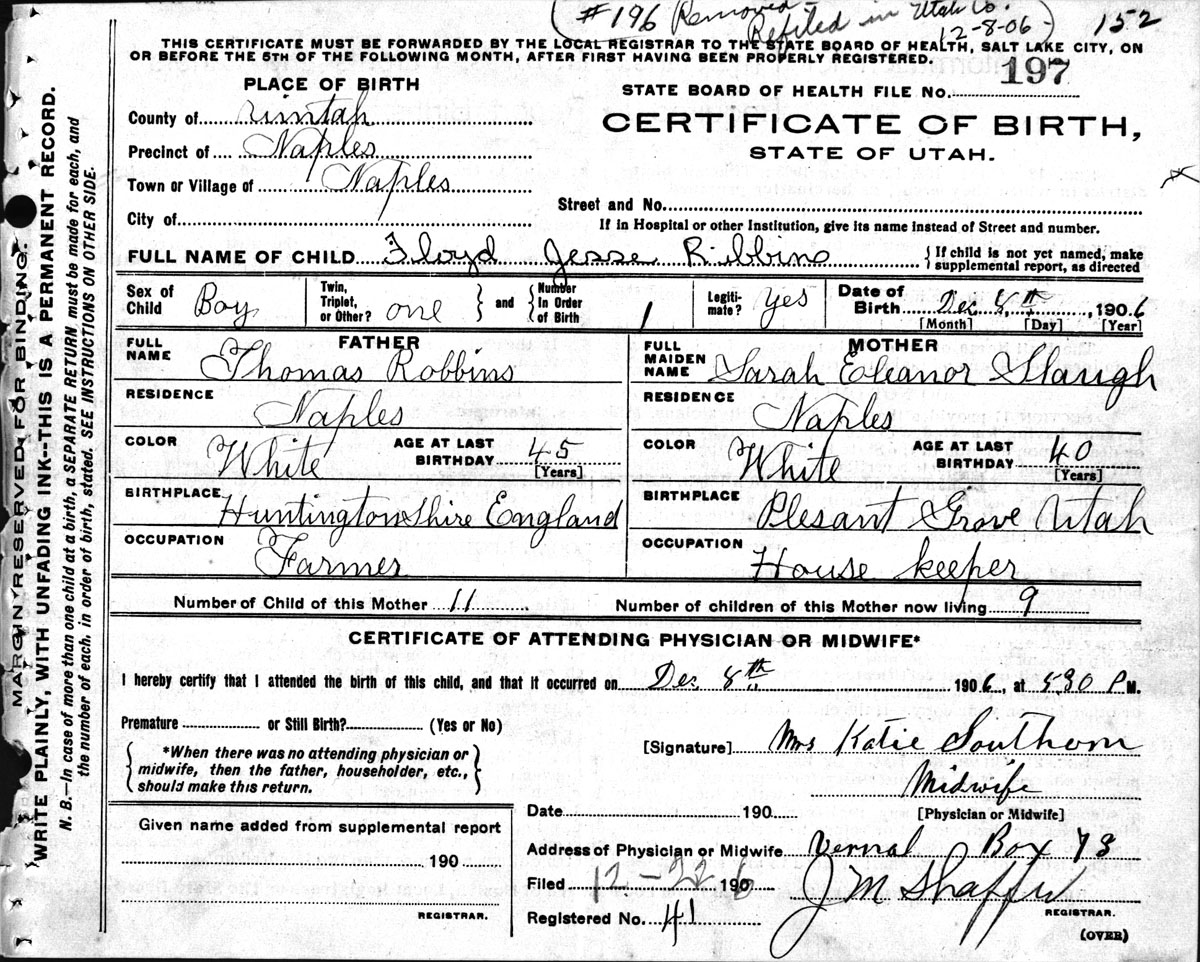 (#196 Removed
Refiled in Utah Co.
12-8-06)
152
THIS CERTIFICATE MUST BE FORWARDED BY THE LOCAL REGISTRAR TO THE STATE BOARD OF HEALTH, SALT LAKE CITY, ON
OR BEFORE THE 5TH OF THE FOLLOWING MONTH, AFTER FIRST HAVING BEEN PROPERLY REGISTERED.
PLACE OF BIRTH
STATE BOARD OF HEALTH FILE No. 197
County of Uintah
CERTIFICATE OF BIRTH,
STATE OF UTAH.
Precinct of Naples
Town or Village of Naples
Street and No.
City of
If in Hospital or other Institution, give its name instead of Street and number.
FULL NAME OF CHILD Floyd Jesse Robbins
{If child is not yet named, make
supplemental report, as directed
Sex of Child Boy
Twin, Triplet, or Other? one } and { Number In Order of Birth 1
Legiti-mate? yes
Date of Birth Dec 8th, 1906
[Month] [Day] [Year]
FATHER
FULL NAME Thomas Robbins
RESIDENCE Naples
COLOR White AGE AT LAST BIRTHDAY 45
[Years]
BIRTHPLACE Huntingtonshire England
OCCUPATION Farmer
MOTHER
FULL MAIDEN NAME Sarah Eleanor Slaugh
RESIDENCE Naples
COLOR White AGE AT LAST BIRTHDAY 40
[Years]
BIRTHPLACE Plesant Grove Utah
OCCUPATION House keeper
Number of Child of this Mother 11 Number of children of this Mother now living 9
CERTIFICATE OF ATTENDING PHYSICIAN OR MIDWIFE*
I hereby certify that I attended the birth of this child, and that it occurred on Dec 8th 1906, at 530 P M.
Premature or Still Birth? (Yes or No)
{*When there was no attending physician or
midwife, then the father, householder, etc.,
should make this return.}
[Signature] Mrs Katie Southom
Midwife
[Physician or Midwife]
Date 190
Given name added from supplemental report
190
REGISTRAR.
Address of Physician or Midwife Vernal Box 73
Filed 12-22 1906 J M Shaffer
REGISTRAR.
Registered No. 41
(OVER)
MARGIN RESERVED FOR BINDING.
WRITE PLAINLY, WITH UNFADING INK--THIS IS A PERMANENT RECORD.
N. B.—In case of more than one child at a birth, a SEPARATE RETURN must be made for each, and
the number of each, in order of birth, stated. SEE INSTRUCTIONS ON OTHER SIDE.